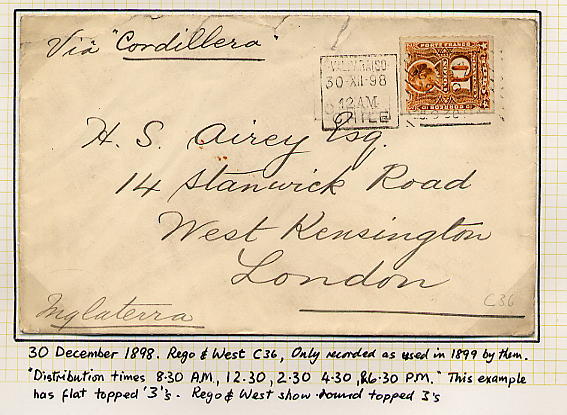 Via "Cordillera"
VALPARAISO
30·XII·98
12 AM
CHILE
PORTE FRANCO
10
H. S. Airey Esq.
14 Stanwick Road
West Kensington
London
Inglaterra
C36
30 December 1898. Rego & West C36, Only recorded as used in 1899 by them.
"Distribution times 8·30 A.M., 12.30, 2·30 4·30, &6·30 P.M." This example
has flat topped '3's. Rego & West show round topped 3's